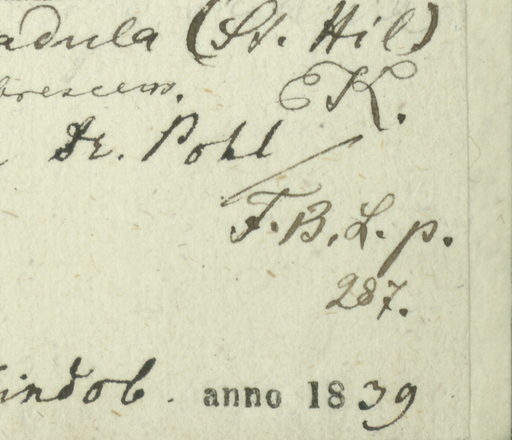 adula (St. Hil)
brescens. EK.
Dr. Pohl
F. B. L. p.
287.
indob. anno 1839